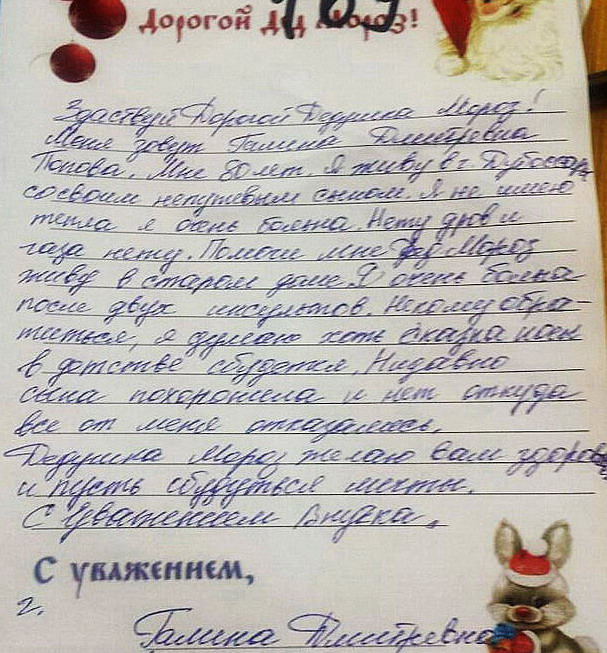 Дорогой Дед Мороз!
Здаствуй Дорогой Дедушка Мороз!
Меня зовут Галина Дмитревна
Попова. Мне 80 лет. Я живу в г. Дубоссары
со своим непутевым сыном. Я не имею
тепла я очень больна. Нету дров и
газа нету. Помоги мне Дед Мороз
живу в старом доме. Я очень больна
после двух инсультов. Некому обра-
титься, я думаю хоть сказка
в детстве сбудется. Нидавно
сына похоронила и нет откуда
все от меня отказались.
Дедушка Мороз желаю Вам здоров
и пусть сбудуться мечты.
С Уважением Внучка.
С уважением,
г.
Галина Дмитревна